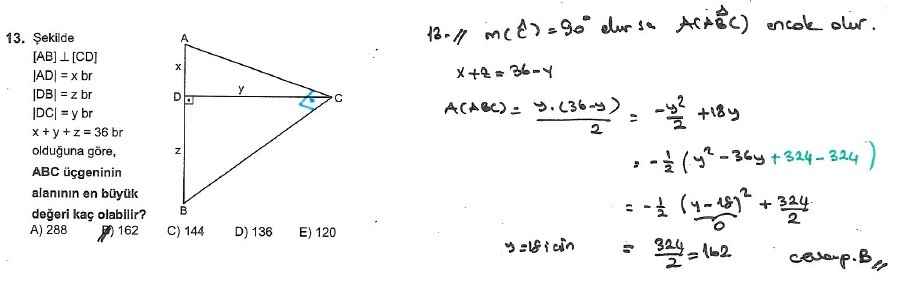 13. Şekilde
[AB] ⊥ [CD]
|AD| = x br
|DB| = z br
|DC| = y br
x + y + z = 36 br
olduğuna göre,
ABC üçgeninin
alanının en büyük
değeri kaç olabilir?
A) 288 B) 162 C) 144 D) 136 E) 120
A
x
D
y
C
z
B
13.// m(Ĉ) = 90° olursa A(ABC) en çok olur.
x+z = 36-y
A(ABC) = y.(36-y)/2 = -y²/2 + 18y
= -1/2 (y² - 36y + 324 - 324)
= -1/2 (y-18)² + 324/2
0
y=18 için = 324/2 = 162 cevap.B//